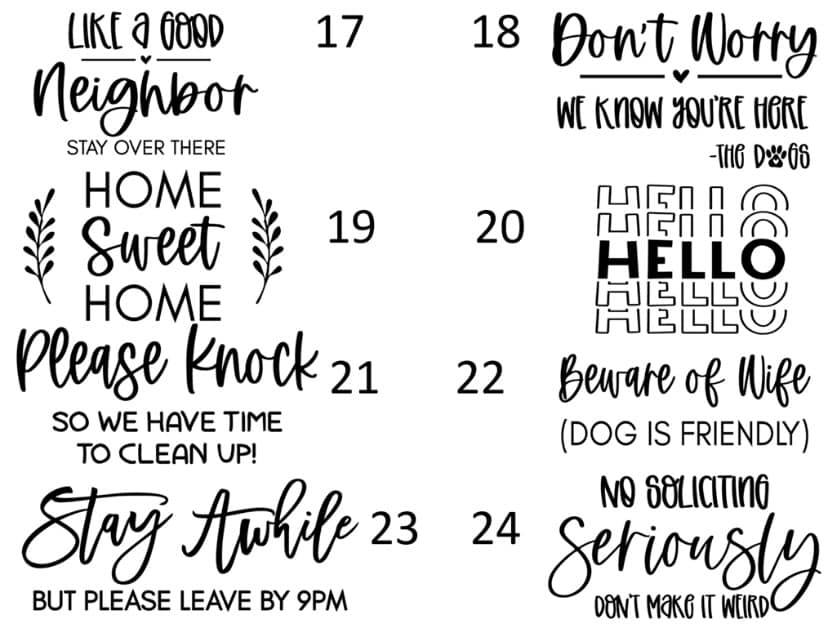 LIKE A GOOD
Neighbor
STAY OVER THERE
17
18
Don't Worry
WE KNOW YOU'RE HERE
-THE DOGS
HOME
Sweet
HOME
19
20
HELLO
HELLO
HELLO
HELLO
HELLO
Please Knock
SO WE HAVE TIME
TO CLEAN UP!
21
22
Beware of Wife
(DOG IS FRIENDLY)
Stay Awhile
BUT PLEASE LEAVE BY 9PM
23
24
NO SOLICITING
Seriously
DON'T MAKE IT WEIRD